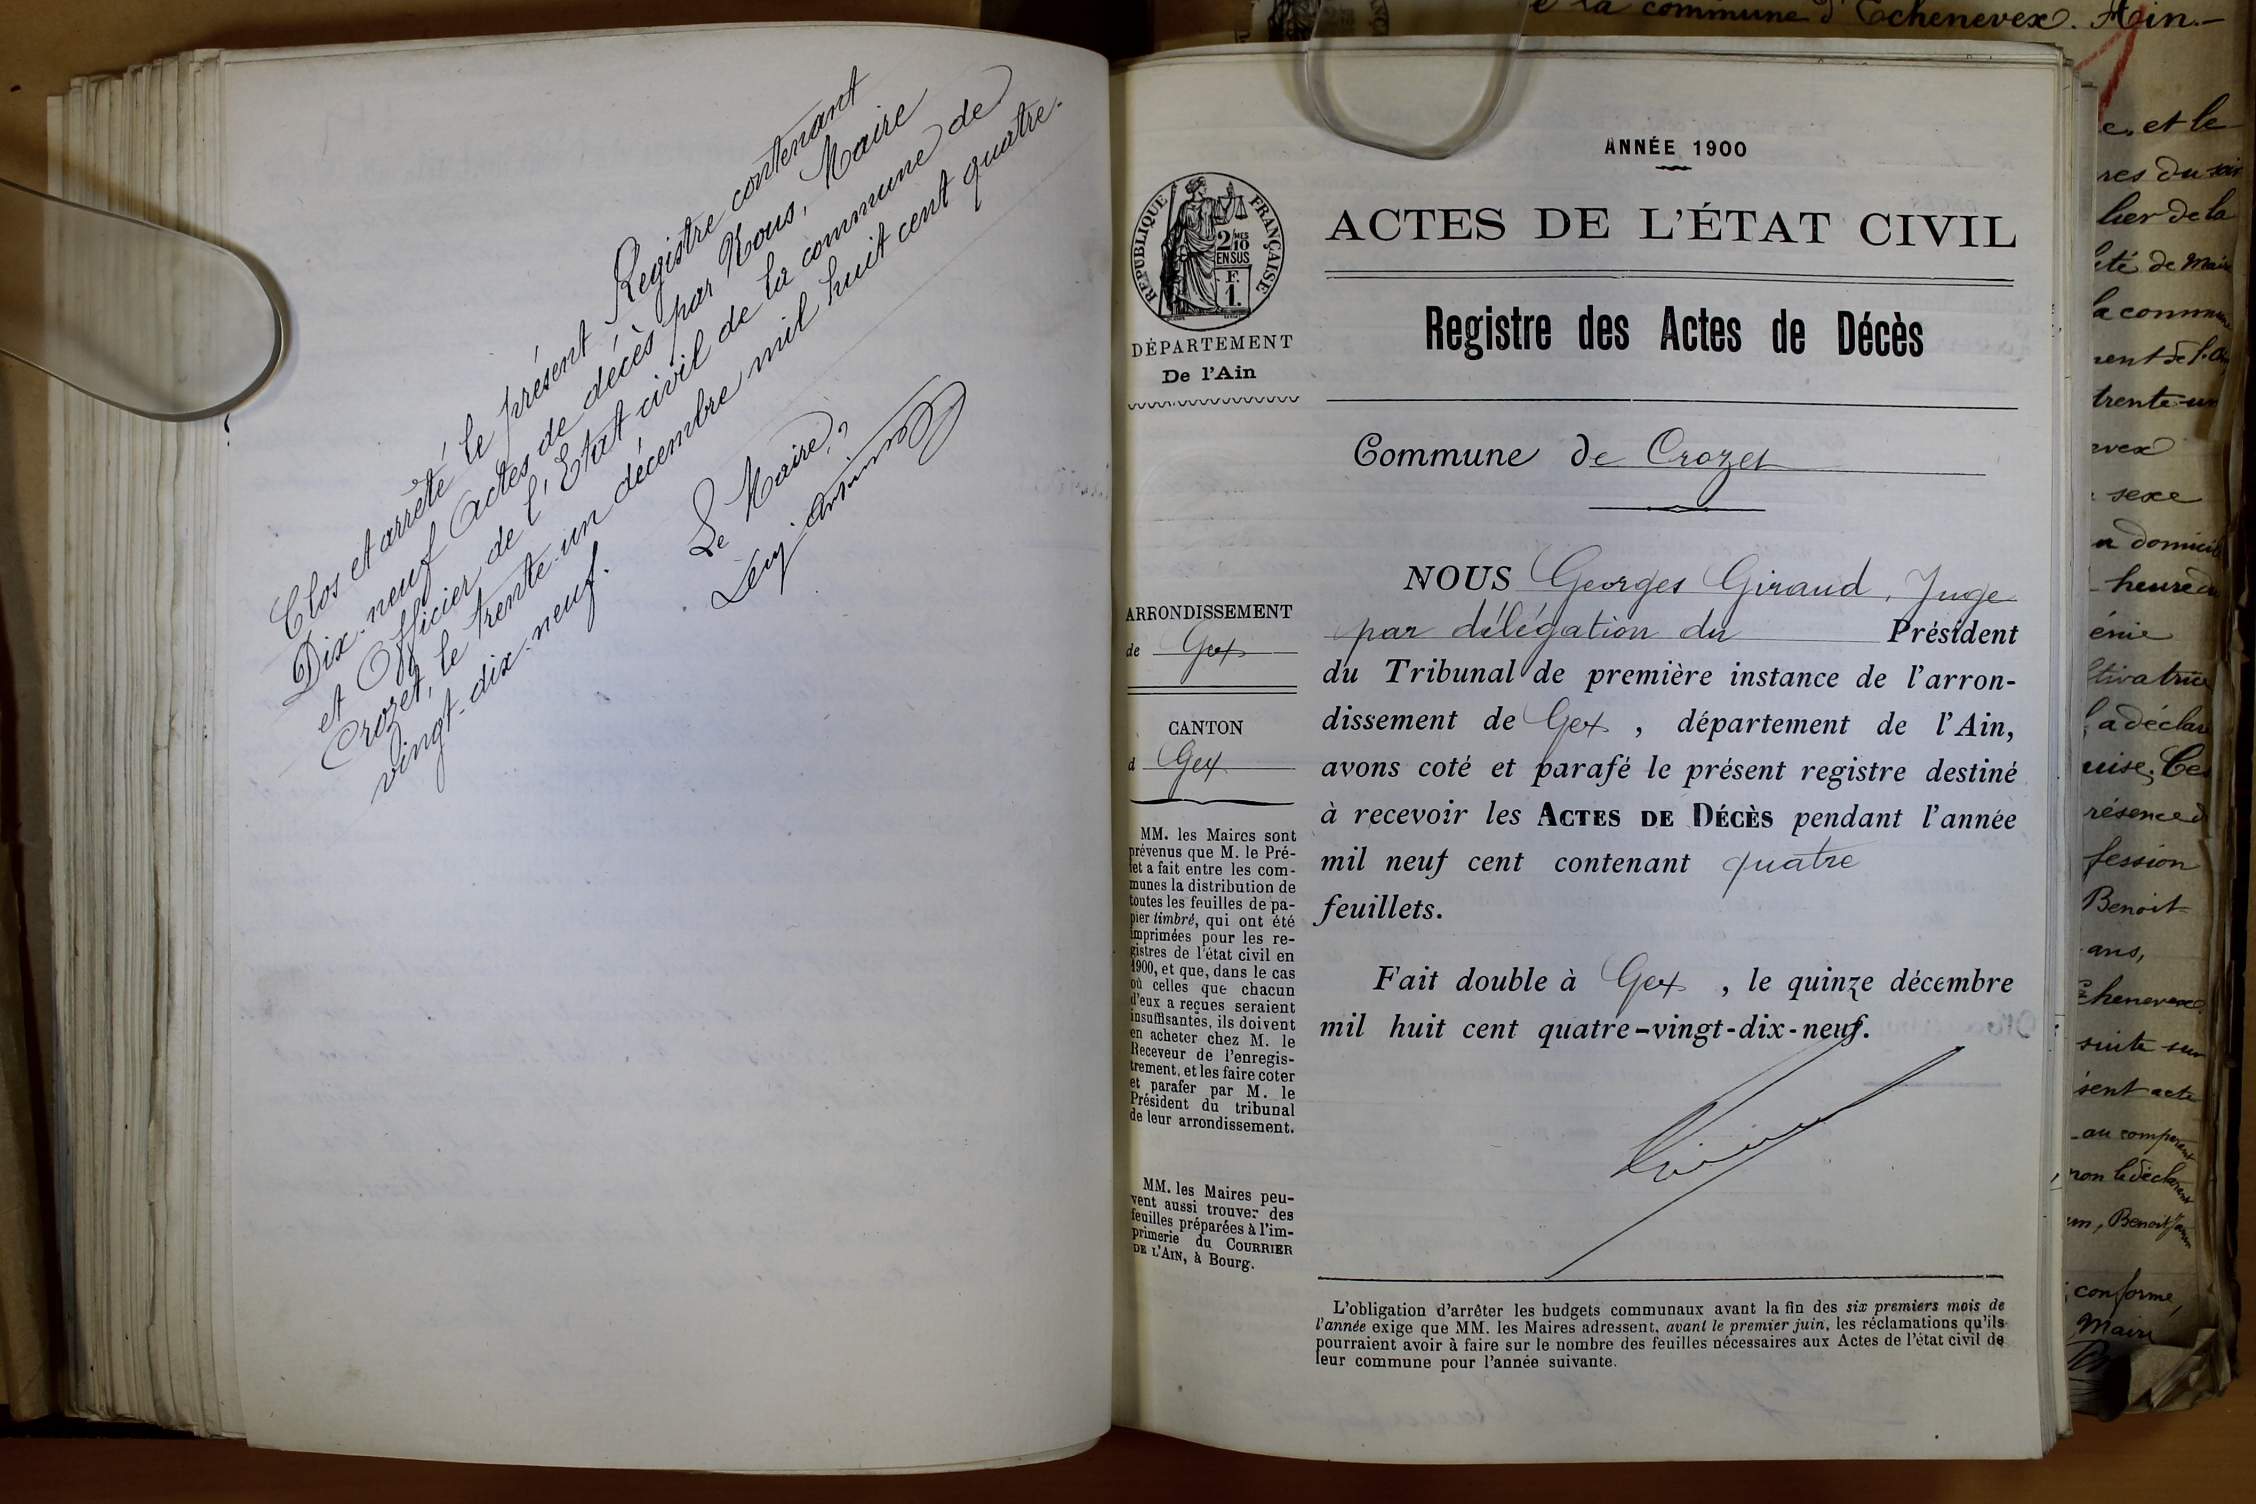 Clos et arrêté le présent Registre contenant
Dix-neuf Actes de décès par Nous, Maire
et Officier de l'Etat civil de la commune de
Crozet, le trente-un décembre mil huit cent quatre-
vingt-dix-neuf.
Le Maire,
ANNÉE 1900
RÉPUBLIQUE FRANÇAISE
2/10
MES
EN SUS
F.
1.
DÉPARTEMENT
De l'Ain
ARRONDISSEMENT
de Gex
CANTON
d Gex
MM. les Maires sont
prévenus que M. le Pré-
fet a fait entre les com-
munes la distribution de
toutes les feuilles de pa-
pier timbré, qui ont été
imprimées pour les re-
gistres de l'état civil en
1900, et que, dans le cas
où celles que chacun
d'eux a reçues seraient
insuffisantes, ils doivent
en acheter chez M. le
Receveur de l'enregis-
trement, et les faire coter
et parafer par M. le
Président du tribunal
de leur arrondissement.
MM. les Maires peu-
vent aussi trouver des
feuilles préparées à l'im-
primerie du COURRIER
DE L'AIN, à Bourg.
ACTES DE L'ÉTAT CIVIL
Registre des Actes de Décès
Commune de Crozet
NOUS Georges Giraud, Juge
par délégation du Président
du Tribunal de première instance de l'arron-
dissement de Gex, département de l'Ain,
avons coté et parafé le présent registre destiné
à recevoir les ACTES DE DÉCÈS pendant l'année
mil neuf cent contenant quatre
feuillets.
Fait double à Gex, le quinze décembre
mil huit cent quatre-vingt-dix-neuf.
L'obligation d'arrêter les budgets communaux avant la fin des six premiers mois de
l'année exige que MM. les Maires adressent, avant le premier juin, les réclamations qu'ils
pourraient avoir à faire sur le nombre des feuilles nécessaires aux Actes de l'état civil de
leur commune pour l'année suivante.
la commune d'Echenevex. Ain.
et le
res du soir
de la
de Mair
la commune
trente-un
vex
sexe
domicil
heure du
énie
ltivatrice
a déclaré
uise. Ces
résence d
fession
Benoit
ans,
Echenevex
suite sur
sent acte
au comparant
non le déclarant
Benoit
conforme,
Maire